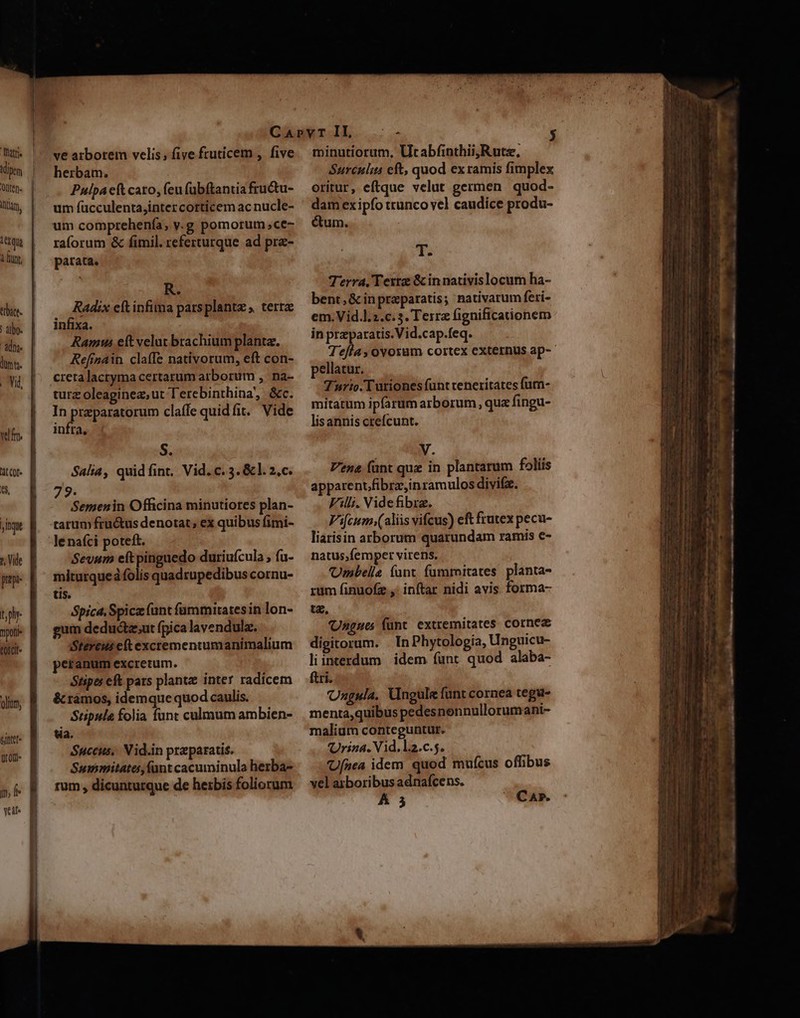 CAPVT II. 5
ve arborem velis, ſive fruticem, ſive
herbam.
Pulpa eſt caro, ſeu ſubſtantia fructu-
um ſucculenta, inter corticem ac nucle-
um comprehenſa, v.g pomorum, ce-
raſorum & ſimil. referturque ad præ-
parata.
R.
Radix eſt infima pars plantæ, terræ
infixa.
Ramus eſt velut brachium plantæ.
Reſina in claſſe nativorum, eſt con-
creta lactyma certarum arborum, na-
turæ oleagineæ, ut Terebinthina, &c.
In præparatorum claſſe quid ſit. Vide
infra.
S.
Salia, quid ſint. Vid. c. 3. & l. 2, c.
79.
Semen in Officina minutiores plan-
tarum fructus denotat, ex quibus ſimi-
le naſci poteſt.
Sevum eſt pinguedo duriuſcula, ſu-
miturque à ſolis quadrupedibus cornu-
tis.
Spica. Spicæ ſunt ſummitates in lon-
gum deductæ, ut ſpica lavendulæ.
Stercus eſt excrementum animalium
per anum excretum.
Stipes eſt pars plantæ inter radicem
& ramos, idemque quod caulis.
Stipulæ folia ſunt culmum ambien-
tia.
Succus. Vid. in præparatis.
Summitates, ſunt cacuminula herba-
rum, dicunturque de herbis foliorum
minutiorum. Ut abſinthii, Rutæ.
Surculus eſt, quod ex ramis ſimplex
oritur, eſtque velut germen quod-
dam ex ipſo trunco vel caudice produ-
ctum.
T.
Terra, Terræ & in nativis locum ha-
bent, & in præparatis; nativarum ſeri-
em. Vid. l. 2. c. 3. Terræ ſignificationem
in præparatis. Vid. cap. ſeq.
Teſta, ovorum cortex externus ap-
pellatur.
Turio. Turiones ſunt teneritates ſum-
mitatum ipſarum arborum, quæ ſingu-
lis annis creſcunt.
V.
Venæ ſunt quæ in plantarum foliis
apparent, fibræ, in ramulos diviſæ.
Villi. Vide fibræ.
Viſcum, (aliis viſcus) eſt frutex pecu-
liaris in arborum quarundam ramis e-
natus, ſemper virens.
Umbellæ ſunt ſummitates planta-
rum ſinuoſæ, inſtar nidi avis forma-
tæ.
Ungues ſunt extremitates corneæ
digitorum. In Phytologia, Unguicu-
li interdum idem ſunt quod alaba-
ſtri.
Ungula. Ungulæ ſunt cornea tegu-
menta, quibus pedes nonnullorum ani-
malium conteguntur.
Urina. Vid. l. 2. c. 5.
Uſnea idem quod muſcus oſſibus
vel arboribus adnaſcens.
A 3 CAP.